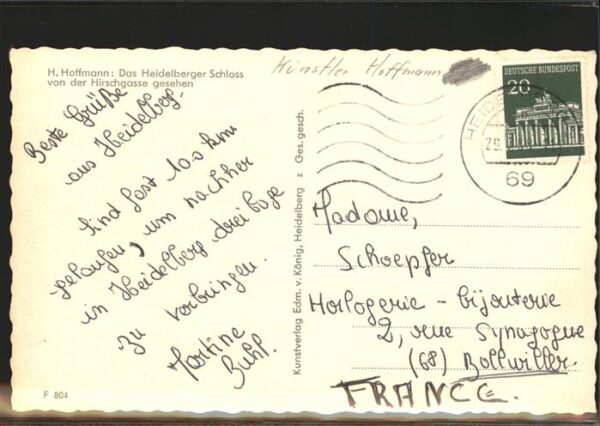 H. Hoffmann: Das Heidelberger Schloss
von der Hirschgasse gesehen
Künstler Hoffmann
Beste Grüße
aus Heidelberg.
Sind fast 100 km
gelaufen, um nachher
in Heidelberg drei Tage
zu verbringen.
Martine
Buhl.
F 804
Kunstverlag Edm. v. König, Heidelberg z Ges. gesch.
DEUTSCHE BUNDESPOST
20
HEIDE
29.
69
Madame,
Schoepfer
Horlogerie - bijouterie
2, rue Synagogue
(68) Bollwiller
FRANCE.